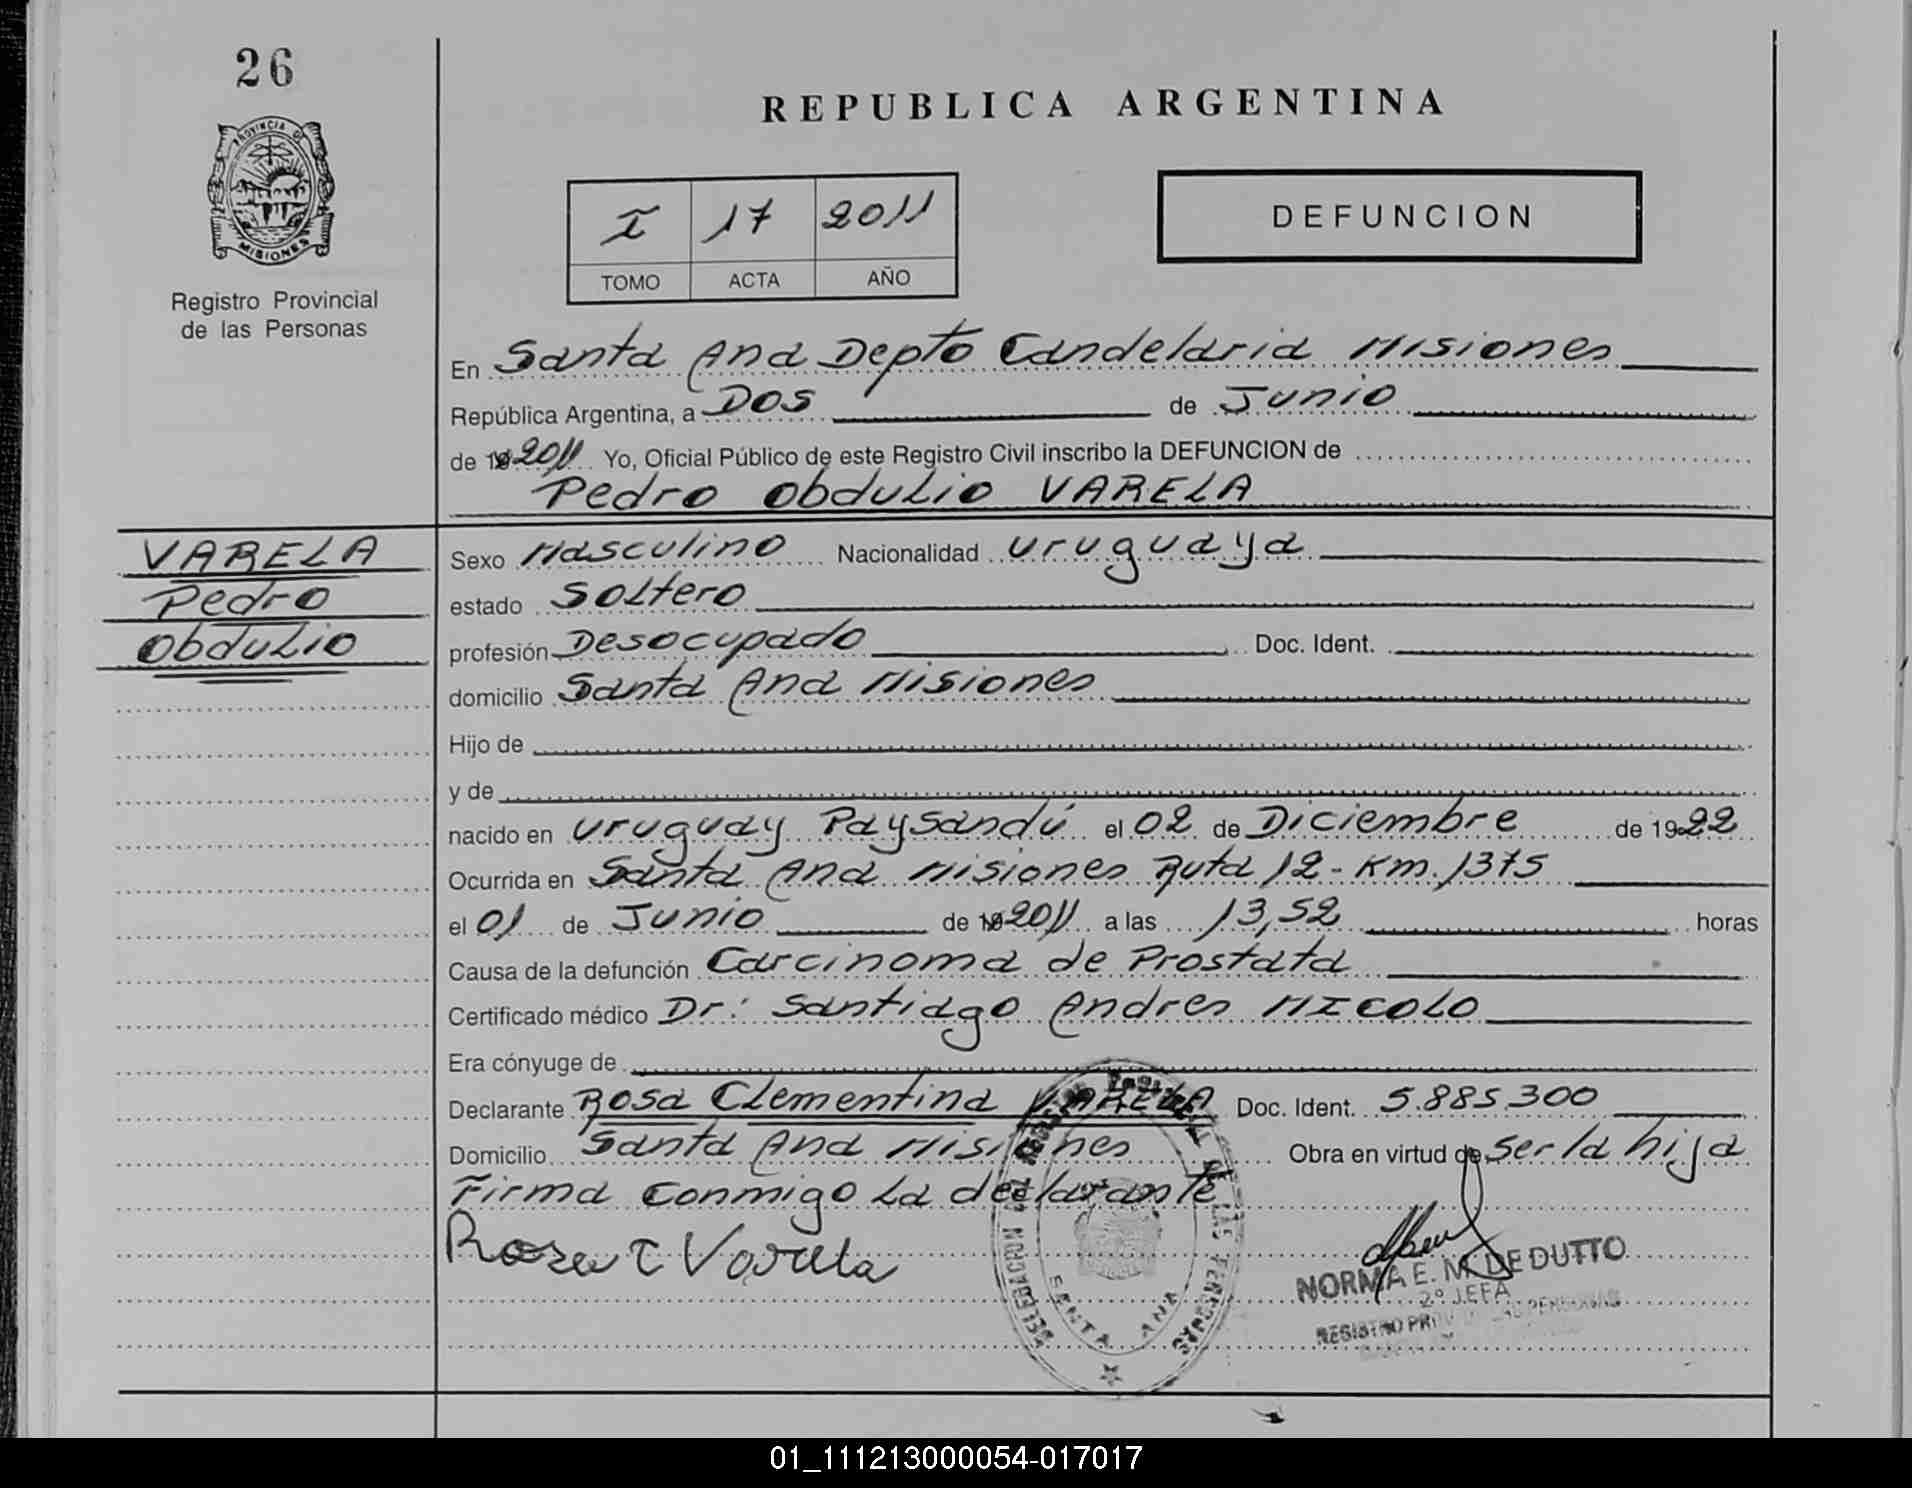 26
REPUBLICA ARGENTINA
PROVINCIA DE
MISIONES
Registro Provincial
de las Personas
I 17 2011
TOMO ACTA AÑO
DEFUNCION
En Santa Ana Depto Candelaria Misiones
República Argentina, a Dos de Junio
de 19 2011 Yo, Oficial Público de este Registro Civil inscribo la DEFUNCION de
Pedro Obdulio VARELA
VARELA
Pedro
Obdulio
Sexo Masculino Nacionalidad uruguaya
estado Soltero
profesión Desocupado Doc. Ident.
domicilio Santa Ana Misiones
Hijo de
y de
nacido en Uruguay Paysandú el 02 de Diciembre de 1922
Ocurrida en Santa Ana Misiones Ruta 12 - Km. 1375
el 01 de Junio de 19 2011 a las 13,52 horas
Causa de la defunción Carcinoma de Prostata
Certificado médico Dr: Santiago Andres MICOLO
Era cónyuge de
Declarante Rosa Clementina VARELA Doc. Ident. 5.885.300
Domicilio Santa Ana Misiones Obra en virtud de ser la hija
Firma conmigo la declarante
Rosa C Varela
SANTA ANA
NORMA E. M. DE DUTTO
2º JEFA
01_111213000054-017017